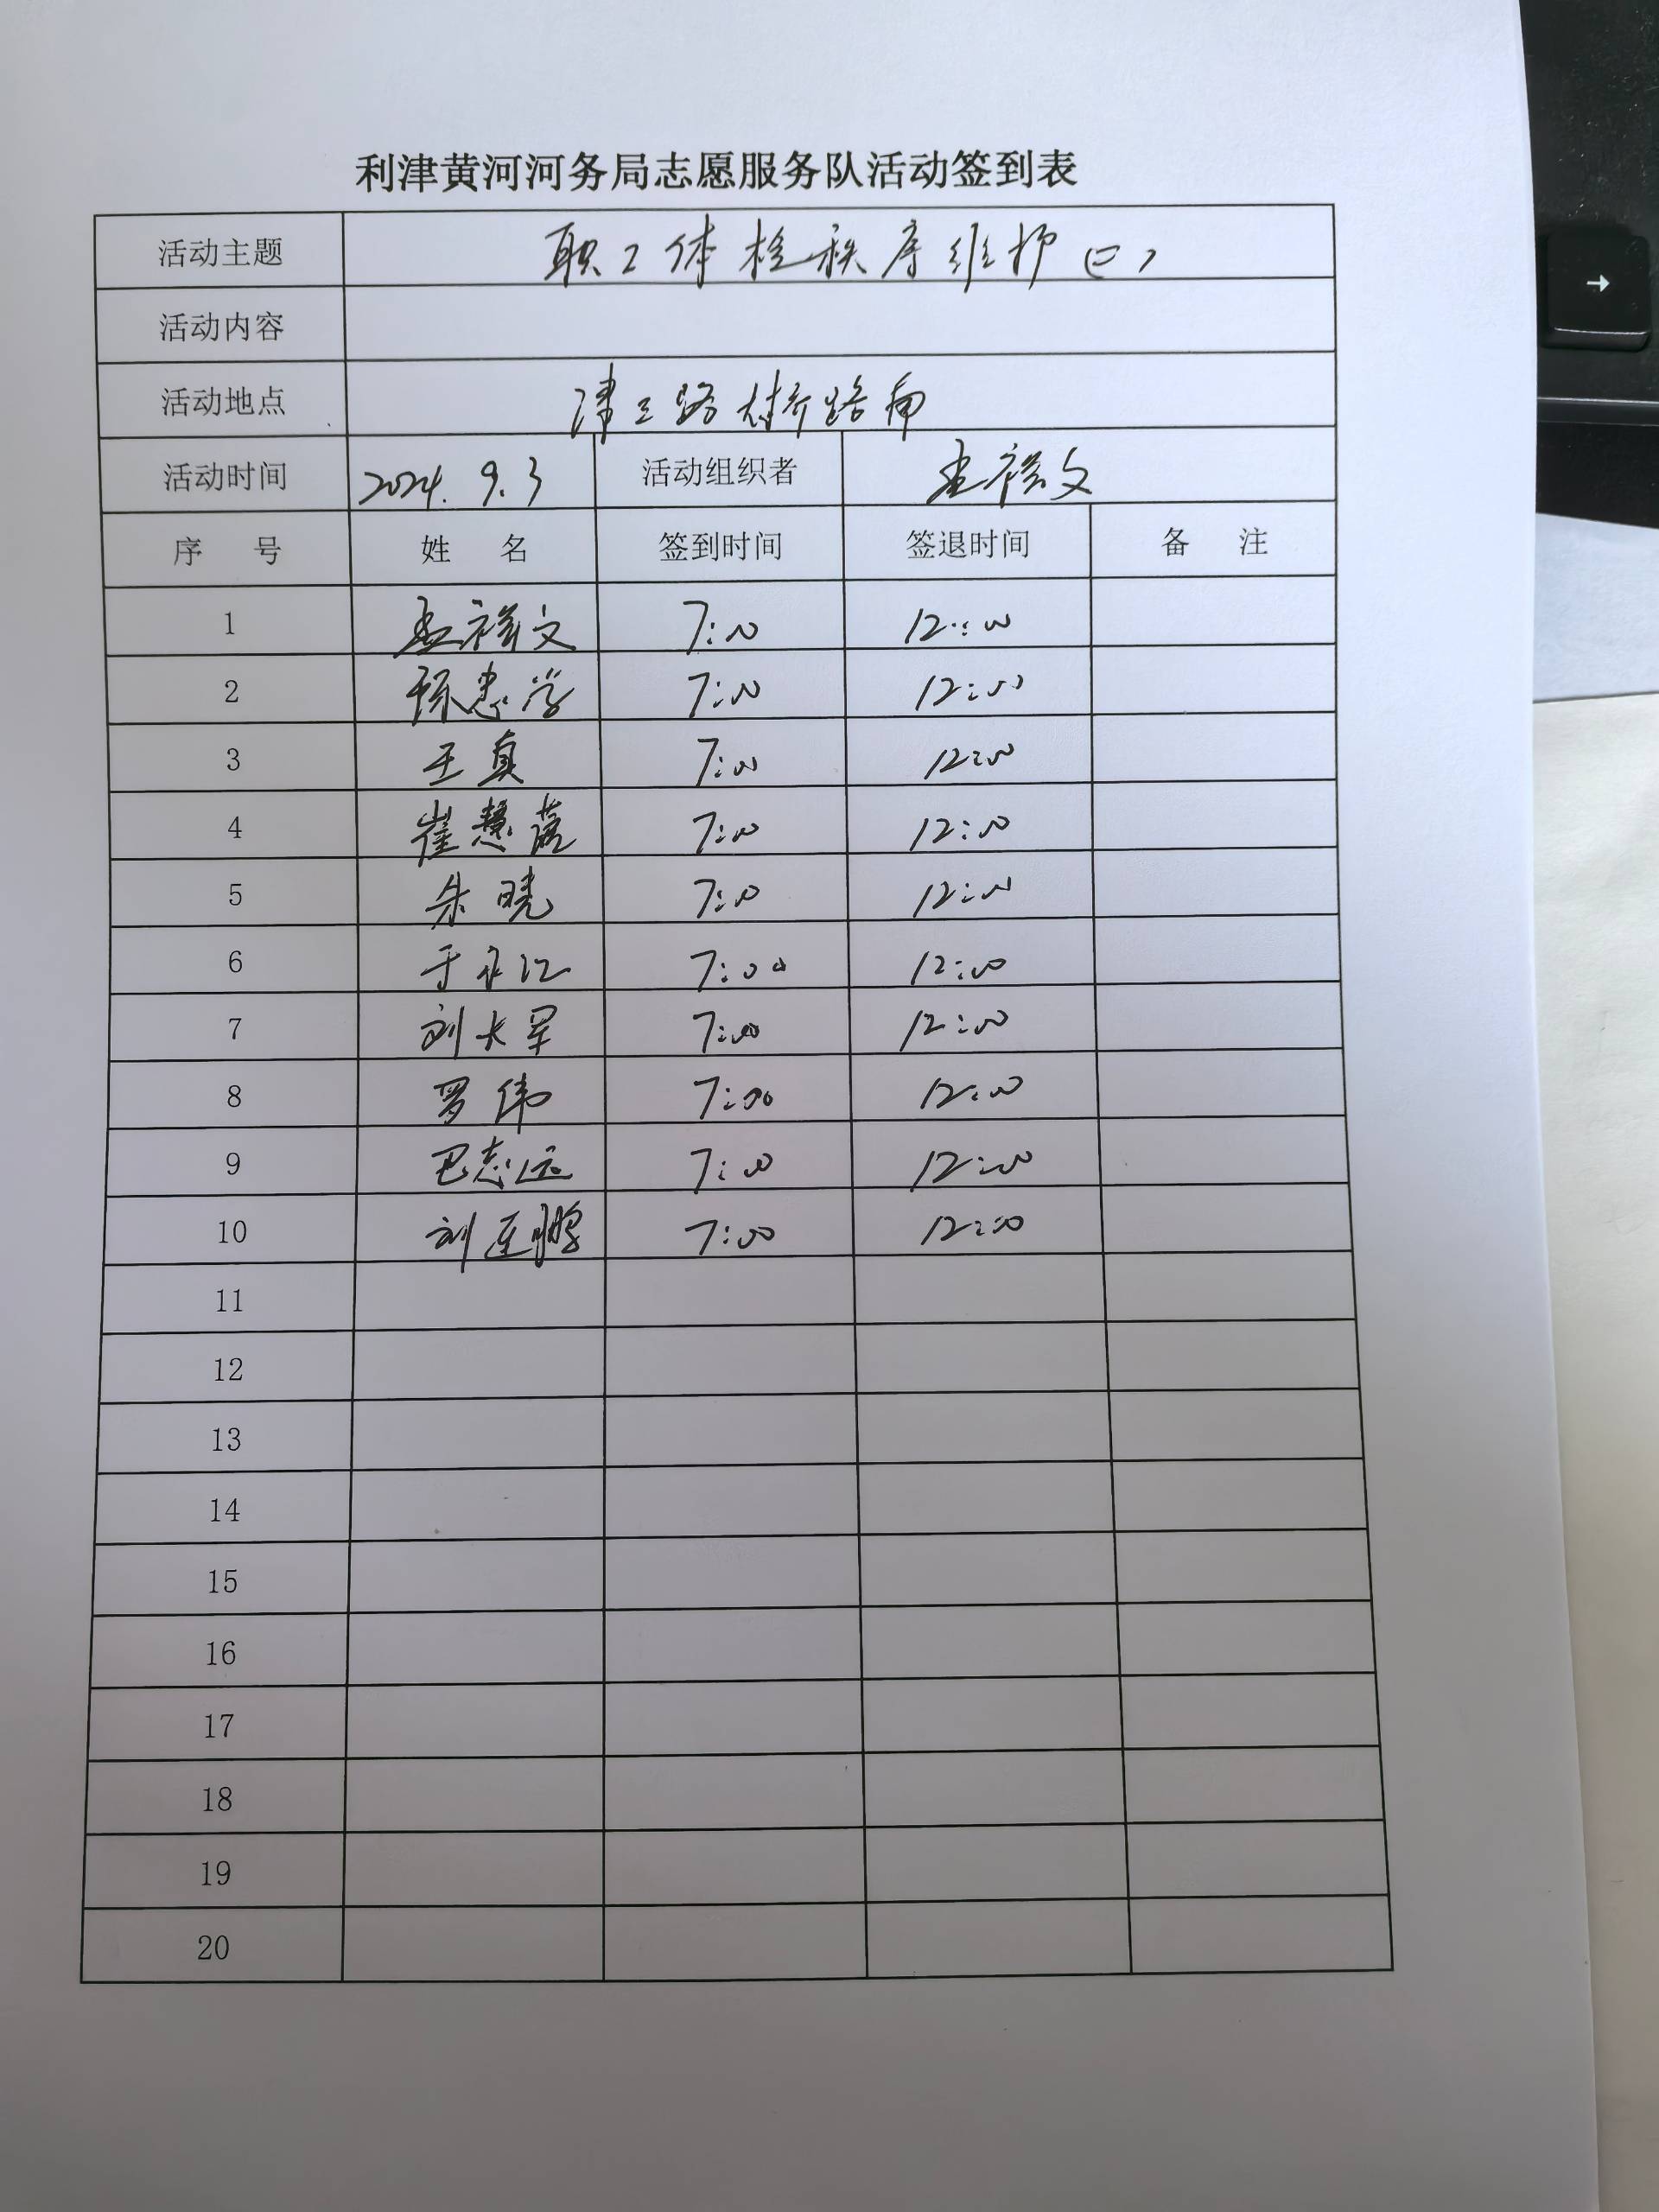 利津黄河河务局志愿服务队活动签到表
活动主题 职工体检秩序维护(二)
活动内容
活动地点 津三路 路南
活动时间 2024.9.3 活动组织者 孟祥文
序 号 姓 名 签到时间 签退时间 备 注
1 孟祥文 7:00 12:00
2 7:00 12:00
3 王真 7:00 12:00
4 崔慧蕾 7:00 12:00
5 朱晓 7:00 12:00
6 7:00 12:00
7 刘大军 7:00 12:00
8 罗伟 7:00 12:00
9 巴志远 7:00 12:00
10 刘连鹏 7:00 12:00
11
12
13
14
15
16
17
18
19
20